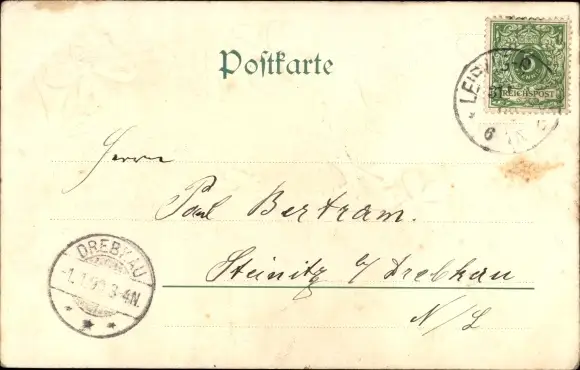 Postkarte
REICHSPOST
Herrn
Paul Bertram.
Steinitz b/ Drebkau
N/L
DREBKAU